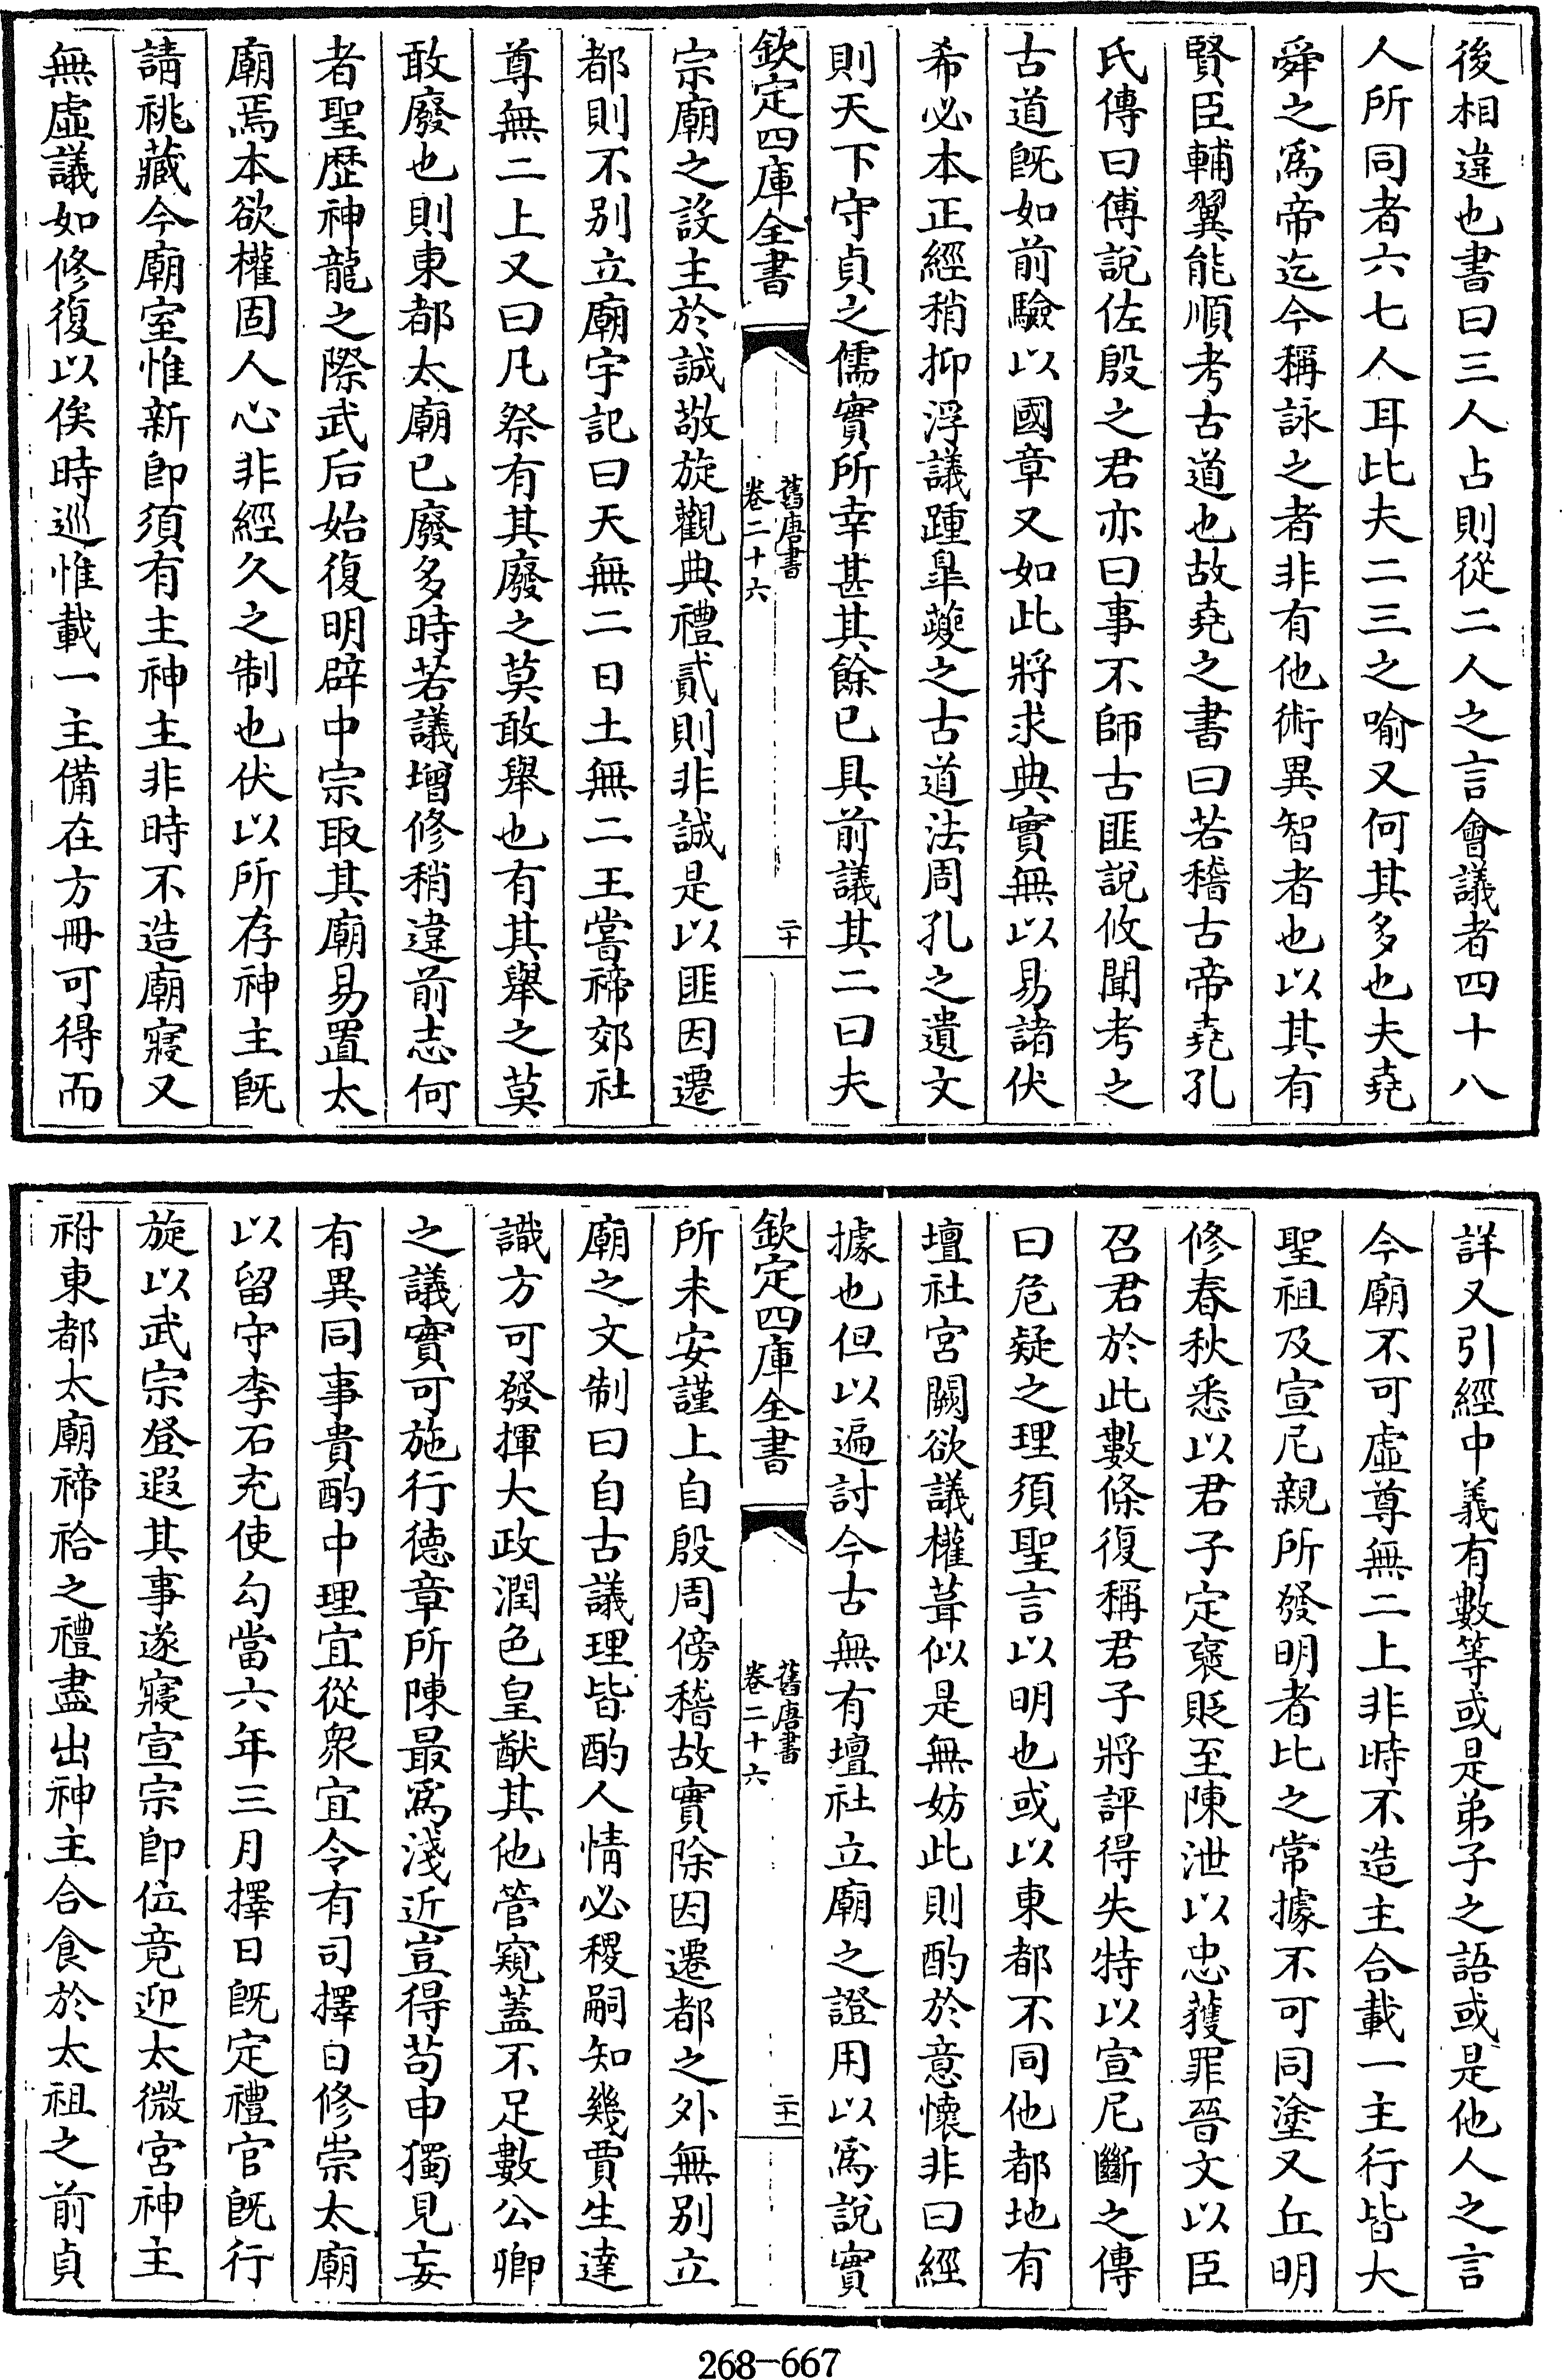 後相違也書曰三人占則從二人之言會議者四十八
人所同者六七人耳比夫二三之喻又何其多也夫堯
舜之爲帝迄今稱詠之者非有他術異智者也以其有
賢臣輔翼能順考古道也故堯之書曰若稽古帝堯孔
氏傳曰傅說佐殷之君亦曰事不師古匪說攸聞考之
古道旣如前驗以國章又如此將求典實無以易諸伏
希必本正經稍抑浮議踵皐夔之古道法周孔之遺文
則天下守貞之儒實所幸甚其餘已具前議其二曰夫
欽定四庫全書
舊唐書
卷二十六
二十
宗廟之設主於誠敬旋觀典禮貳則非誠是以匪因遷
都則不別立廟宇記曰天無二日土無二王嘗禘郊社
尊無二上又曰凡祭有其廢之莫敢舉也有其舉之莫
敢廢也則東都太廟已廢多時若議增修稍違前志何
者聖歷神龍之際武后始復明辟中宗取其廟易置太
廟焉本欲權固人心非經久之制也伏以所存神主旣
請祧藏今廟室惟新卽須有主神主非時不造廟寢又
無虛議如修復以俟時巡惟載一主備在方冊可得而
詳又引經中義有數等或是弟子之語或是他人之言
今廟不可虛尊無二上非時不造主合載一主行皆大
聖祖及宣尼親所發明者比之常據不可同塗又丘明
修春秋悉以君子定褒貶至陳泄以忠獲罪晉文以臣
召君於此數條復稱君子將評得失特以宣尼斷之傳
曰危疑之理須聖言以明也或以東都不同他都地有
壇社宮闕欲議權葺似是無妨此則酌於意懷非曰經
據也但以遍討今古無有壇社立廟之證用以爲說實
欽定四庫全書
舊唐書
卷二十六
二十一
所未安謹上自殷周傍稽故實除因遷都之外無別立
廟之文制曰自古議理皆酌人情必稷嗣知幾賈生達
識方可發揮大政潤色皇猷其他管窺蓋不足數公卿
之議實可施行德章所陳最爲淺近豈得苟申獨見妄
有異同事貴酌中理宜從衆宜令有司擇日修崇太廟
以留守李石充使勾當六年三月擇日旣定禮官旣行
旋以武宗登遐其事遂寢宣宗卽位竟迎太微宮神主
祔東都太廟禘祫之禮盡出神主合食於太祖之前貞
268-667